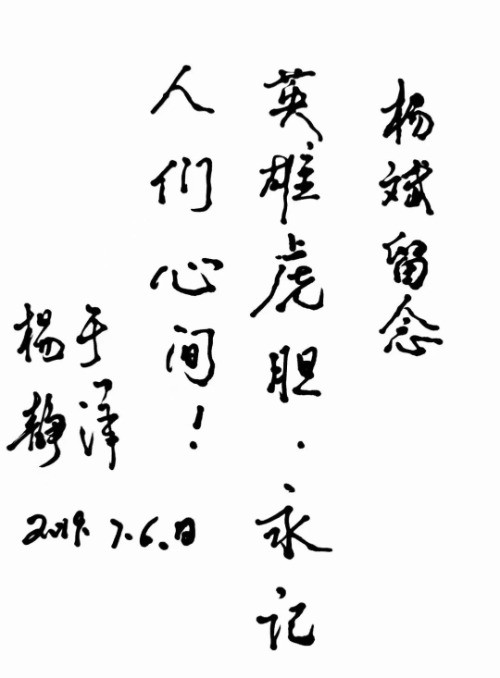 杨斌留念
英雄虎胆·永记
人们心间！
于洋
杨静
2019.7.6.日